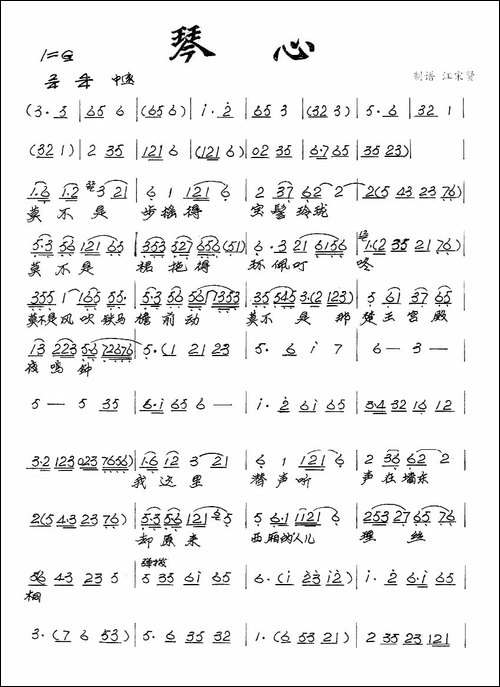 琴 心
1=G
中速 制谱
(3· 5 | 65 6 | (65 6) | i· 2 | 65 3 | (32 3) | 5· 6 | 32 1
(32 1) | 2 35 | 121 6 | (121 6) | 02 35 | 6·7 65 | 35 23) |
1·6 1·2 3 21 | 6 1 121 6 | 2 37 62 2 | 2(5 43 23 76)
莫不是 步摇得 宝髻玲珑
5·3 56 121 65 | 353 527 656(51) | 6· 3 21 6156 | 1·(2 35 21 76)
莫不是 裙拖得 环佩叮 咚
355 1 165 55 | 5·3 56 561 1353 | 35 545 3·(2 123) | 5 61 37 65
莫不是风吹铁马 檐前动 莫不是那 楚王宫殿
13 223 5·6 7267 6 | 5·(1 21 23 | 5 6 i 7 | 6 — 3 —
夜鸣钟
5 — 5 35 | 6·i 65 6 — | i· 2 6i 65 | 3·4 32 16 12
3·2 123 023 7656) | 1·6 12 3 21 | 6 1 121 6 | 2 36 62 2
我这里 潜声听 声在墙东
2(5 4·3 23 76) | 5·3 5·6 121 5 | 56·1 1121 6 | 253 27 65 76
却原来 西厢的人儿 理 丝
弹拨
56 43 23 5 | 5 35 6i 65 | 6·(i 23 12) | i· 2 6·i 65
桐
3·(7 6 53) | 5· 6 35 32 | 1·(65 53 21) | 2 35 23 121